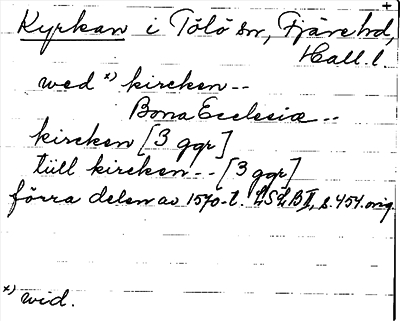 +
Kyrkan i Tölö sn, Fjäre hd,
Hall. l.
wed x) kircken --
Bona Ecclesiæ --
kircken [3 ggr]
tüll kircken -- [3 ggr]
förra delen av 1570-t. LSLB II, s. 454. orig
x) wid.